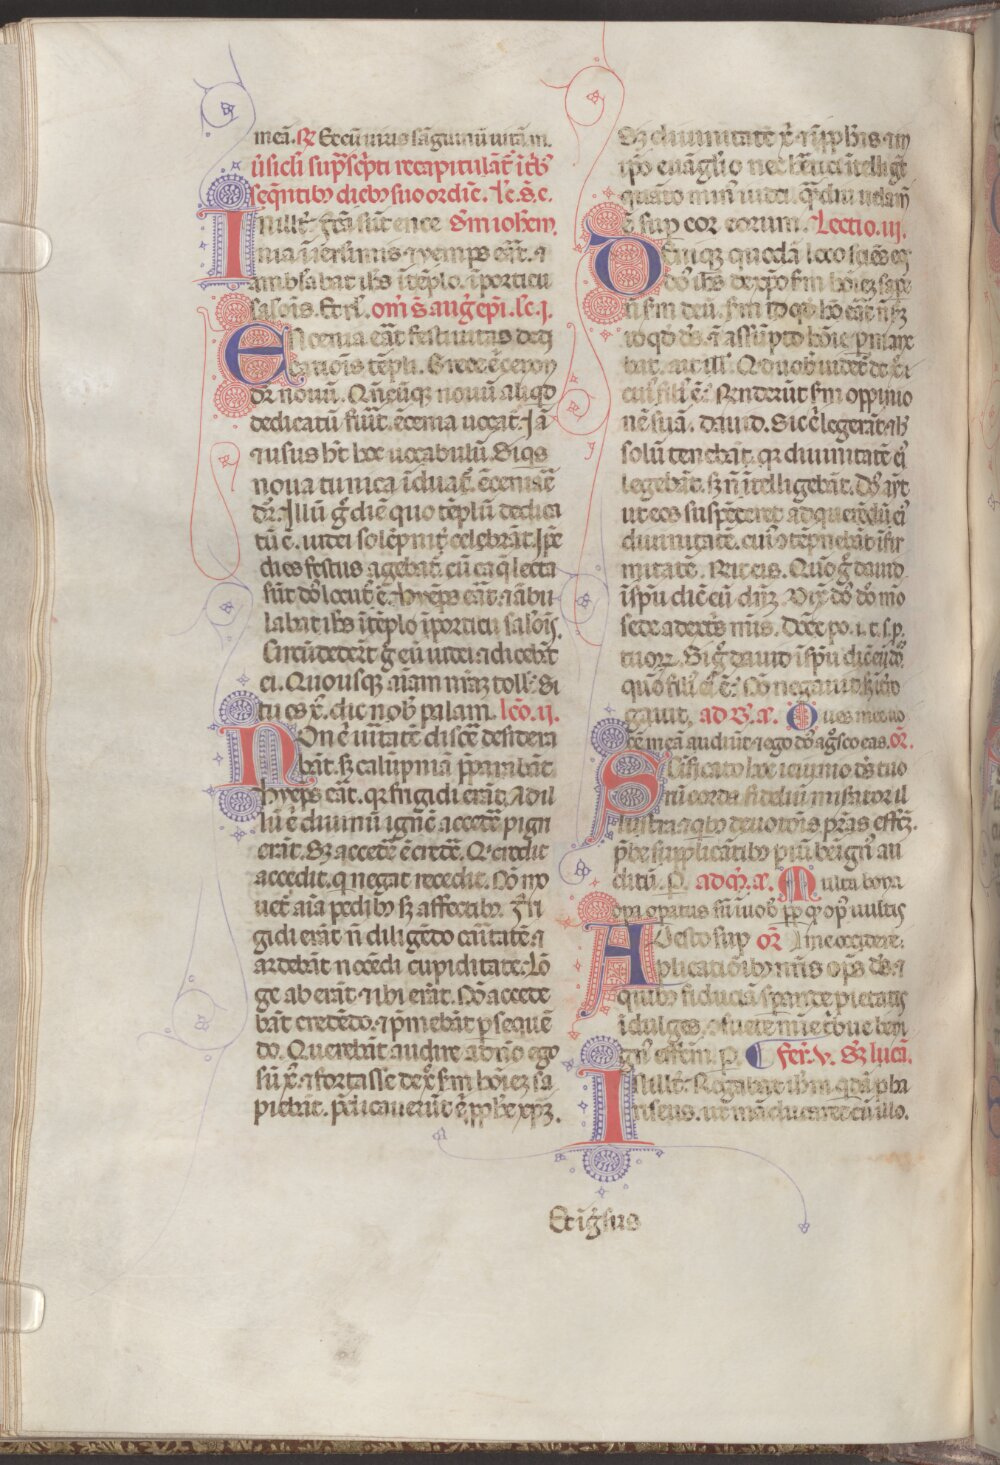 meā. R Et cū viris sāguinū vitā m.
v̄sicli sup̄sc̄pti recapitulāt̄ it̄
seq̄ntib₉ dieb₉ suo ordīe. lc̄. s̄. e.
In illo t̄. fcā sūt encenia Sm̄ ioh̄em.
ī ierl̄imis ⁊ yemps eāt. ⁊
ambulabat ih̄s ī tēplo. ī porticu
salōis. Et rl̄. om̄. s̄. auḡ. ep̄i. lc̄. j.
Encenia eāt festiuitas dedi
cat̄iois tēpli. Grece .n. cenon
dr̄ nouū. Qn̄cūq̄ nouū aliq̄d
dedicatū fūit ēcenia uocāt̄. Jā
⁊ usus h̄t hoc uocabulū. Siq̄s
noua tunica īduat̄. ēceniaē
dr̄. Illū g̊ diē quo tēplū dedica
tū ē. iudei solēpnit̄ celebrāt. Ip̄e
dies festus agebat̄. cū ea q̄ lecta
sūt dn̄s locut̄₉ ē. Hyēps eāt. ⁊ ābu
labat ih̄s ī tēplo ī porticu salōis.
Circūdederūt g̊ eū iudei ⁊ dicebāt
ei. Quousq̄ aīam nr̄az tollis. Si
tu es x̄. dic nob̄ palam. leō. ij.
Non ē u̇itatē discē̄ desidera
bāt. s₃ calūpnia p̄parabāt.
Hyeps eāt. qr̄ frigidi erāt. Ad il
lū .n. diuinū ignē accedē̄ pigri
erāt. S₃ accedē̄ ē credē̄. Q̇ credit
accedit. q̇ negat recedit. Nō mo
uet̄ aīa pedib₉ s₃ affectib₉. Fri
gidi erāt n̄ diligēdo caritatē. ⁊
ardebāt nocēdi cupiditate. Lō
ge aberāt ⁊ ibi erāt. Nō accede
bāt credēdo. ⁊ p̄mebāt p̄sequē
do. Querebāt audire a dn̄o ego
sū x̄. ⁊ fortasse de x̄ sm̄ hoīez sa
piebāt. p̄dicauerūt .n. pp̄he xp̄m.
S₃ diuinitatē x̄. ⁊ ī pp̄h̄is ⁊ in
ip̄o euāglio nec h̄etici ītelligūt
quāto min₉ iudei q̄mdiu uelam̄
ē sup cor eorum. Lectio. iij.
Deniq̄ quodā loco sciēs eos
dn̄s ih̄s de xp̄o sm̄ hoīez sape
n̄ sm̄ deū. sm̄ id qd̄ hō eāt. n̄ s₃
id qd̄ ds̄. ⁊ assūpto hoīe p̄mane
bat. ait illis. Qd̄ uob̄ uidet̄ de x̄.
cui₉ fili₉ ē. Rn̄derūt sm̄ oppinio
nē suā. dauid. Sic .n. legerāt ⁊ h̄
solū tenebāt. qr̄ diuinitatē ei₉
legebāt. s₃ n̄ ītelligebāt. Dn̄s āūt
ut eos suspēderet ad querēdū ei₉
diuinitatē. cui₉ ɔtēpnebāt īfir
mitatē. R̄it eis. Quō g̊ dauid
ī sp̄u dic̄ eū dn̄m. Dix̄ dn̄s dn̄o mo
sede a dext̄s meis. Donec po. i. t. s. p.
tuoꝝ. Si g̊ dauid ī sp̄u dic̄ eū dn̄z
quō fili₉ ei₉ ē. Nō negauit s₃ īter
gauit. ad B̄. a͞. Oues mee uo
cē meā audiūt ⁊ ego dn̄s ag̊sco eas. or̄.
Sc̄ifica₋to hoc ieiunio ds̄ tuo
rū corda fideliū miserator il
lustra. ⁊ q̇b₉ deuotōis p̄stas effc̄m.
p̄be supplicātib₉ piū beīgn̄ au
ditū. P. ad m̄. a͞. Multa bona
opa opatus sū uob̄ pp̄ qd̄ op₉ uultis
Adesto sup or̄. me occidere.
plicatiōib₉ nr̄is op̄s ds̄. ⁊
quib₉ fiduciā sperande pietatis
īdulges. ɔsuete mīe tribue beni
gn₉ effc̄m. P. fer̄. v. S₃ lucā.
In illo t̄. Rogabat ih̄m q̇dā pha
riseus. ut māducaret cū illo.
Et īg̊ssus